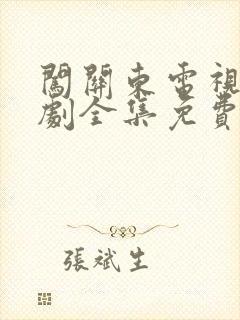 闖關東電視
劇全集免費
張斌生